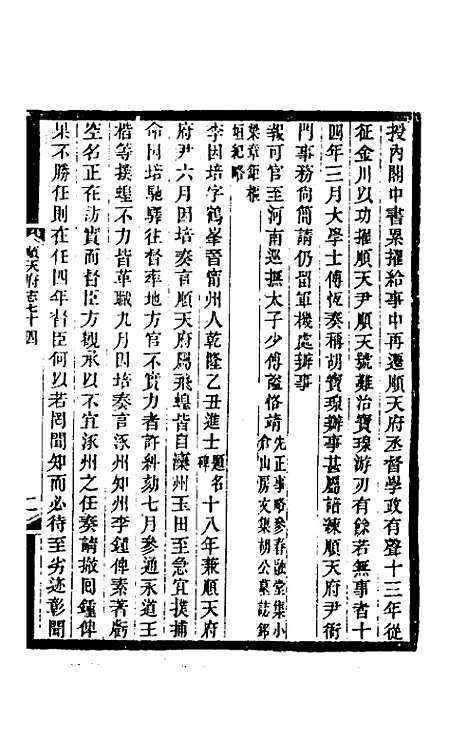 授內閣中書累擢給事中再遷順天府丞督學政有聲十三年從
征金川以功擢順天尹順天號難治寶瑔游刃有餘若無事者十
四年三月大學士傅恆奏稱胡寶瑔辦事甚屬諳練順天府尹衙
門事務尙簡請仍留軍機處辦事
報可官至河南巡撫太子少傅諡恪靖先正事略參春融堂集小倉山房文集胡公墓誌銘
梁章鉅樞垣紀略
李因培字鶴峯晉甯州人乾隆乙丑進士題名碑十八年兼順天府
府尹六月因培奏言順天府屬飛蝗皆自灤州玉田至急宜撲捕
命因培馳驛往督率地方官不實力者許糾劾七月參通永道王
楷等撲蝗不力皆革職九月因培奏言涿州知州李鍾俾素著虧
空名正在訪實而督臣方觀承以不宜涿州之任奏請撤回鍾俾
果不勝任則在任四年督臣何以若罔聞知而必待至劣迹彰聞
順天府志七十四
二